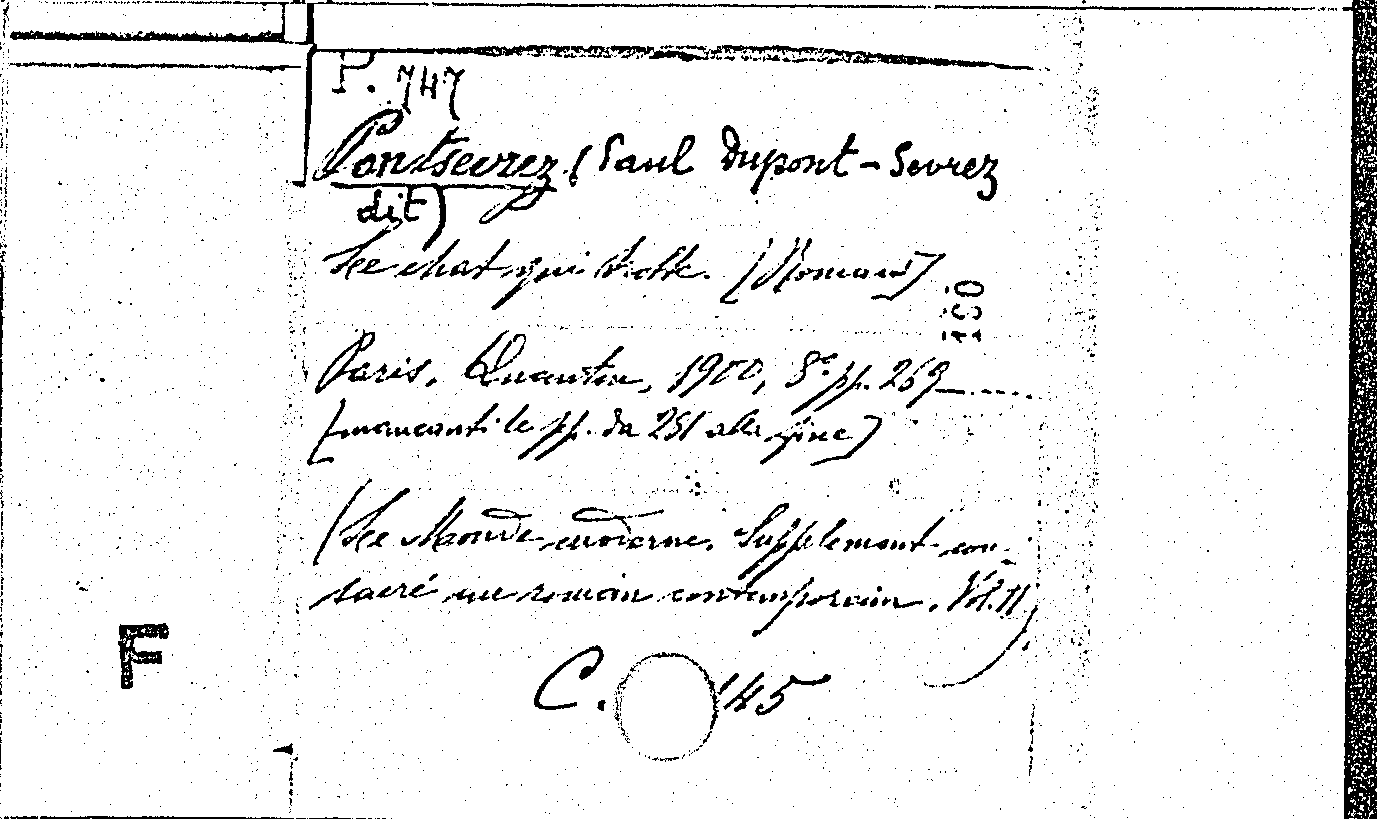 P. 747
Pontsevrez (Paul Dupont-Sevrez
dit)
Le chat qui trotte. [Roman]
160
Paris, Quantin, 1900, 8° pp. 269
[mancanti le pp. da 251 alla fine]
(Le Monde moderne. Supplément con-
sacré au roman contemporain. Vol. II)
C. 145
F